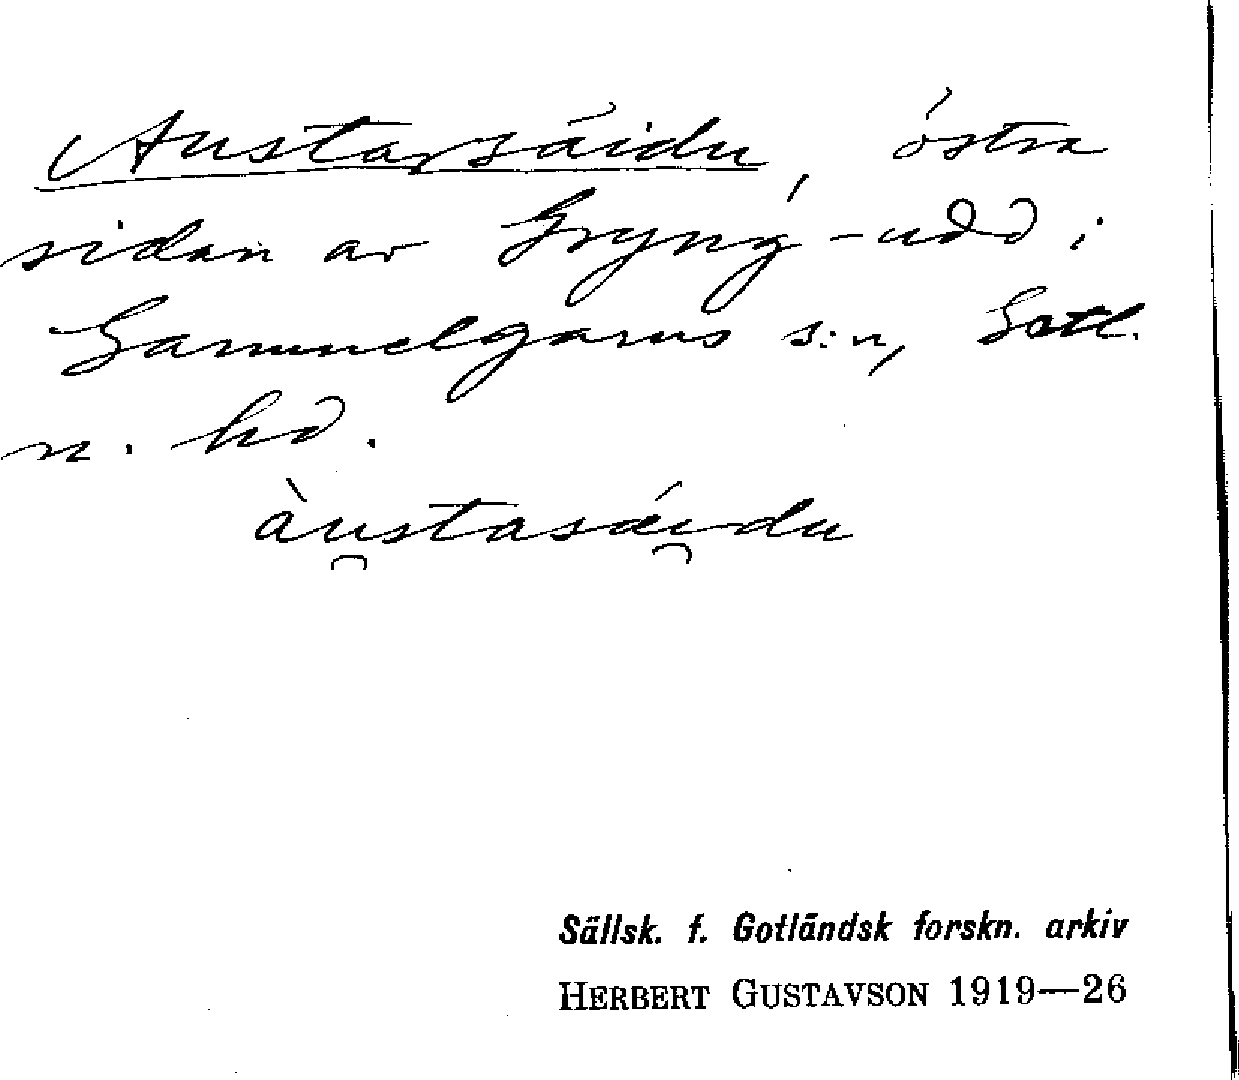 Austarsäidu, östra
sidan av Gryng-udd i
Gammelgarns s:n, Gotl.
n. hd.
àu̯stasái̯du
Sällsk. f. Gotländsk forskn. arkiv
HERBERT GUSTAVSON 1919—26